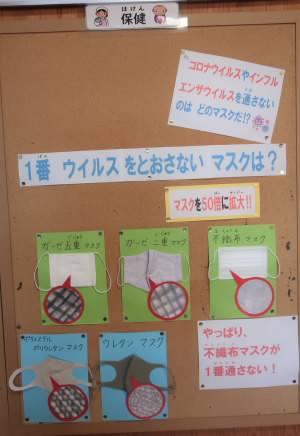 ほけん
保健
コロナウイルスやインフル
エンザウイルスを通さない
のは どのマスクだ!?
1番 ウイルス をとおさない マスクは？
マスクを50倍に拡大!!
ガーゼ 五重 マスク
ガーゼ 二重 マスク
不織布 マスク
ポリエステル
ポリウレタン マスク
ウレタン マスク
やっぱり、
不織布マスクが
1番通さない！